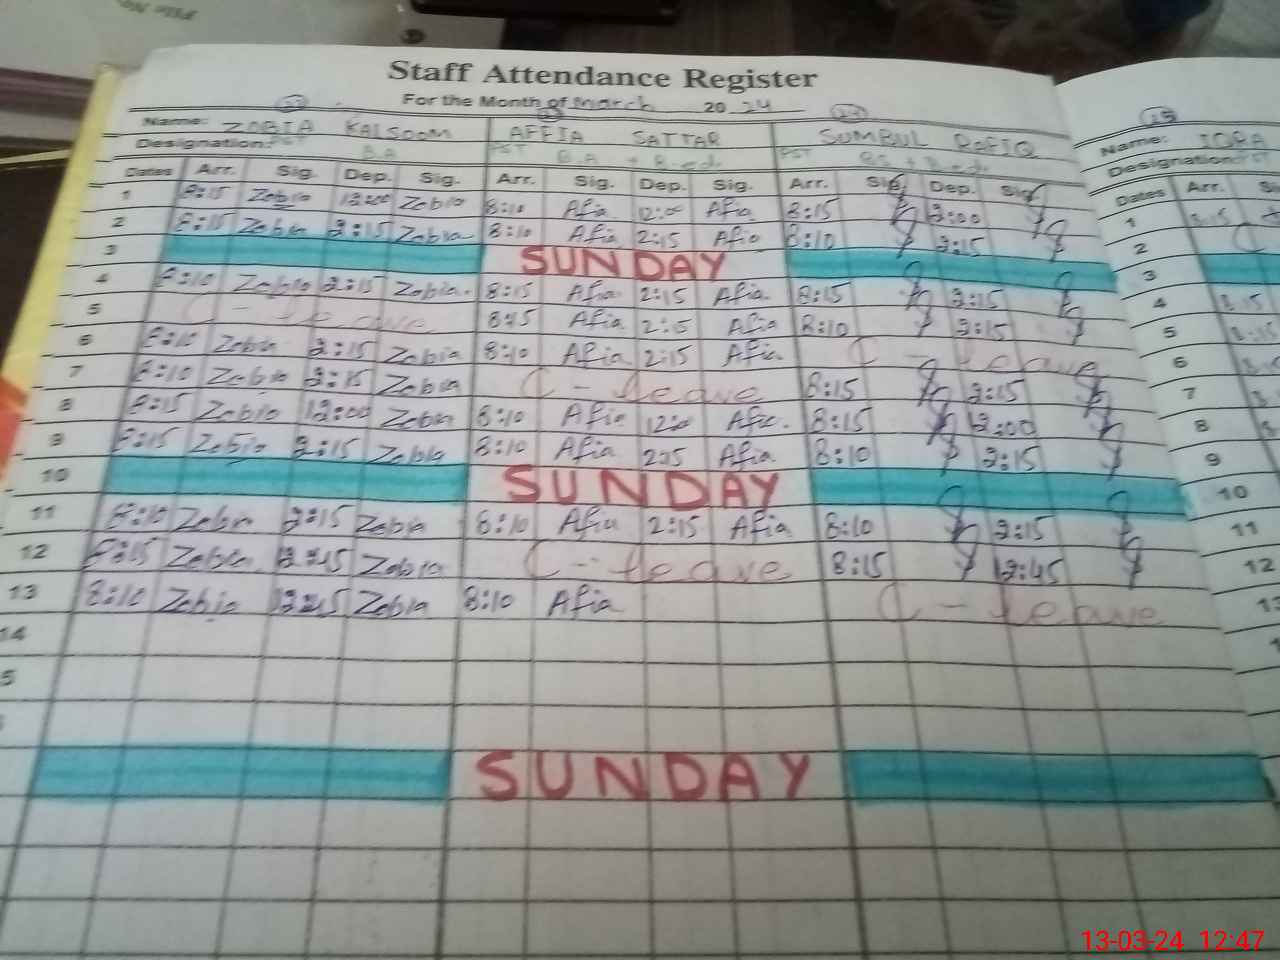 Staff Attendance Register
For the Month of March 2024
Name: ZOBIA KALSOOM AFFIA SATTAR SUMBUL RAFIQ Name: IQRA
Designation: PST B.A PST B.A + B.ed. PST Designation:
Dates Arr. Sig. Dep. Sig. Arr. Sig. Dep. Sig. Arr. Sig. Dep. Sig. Dates Arr.
1 8:15 Zobia 12:00 Zobia 8:10 Afia 12:00 Afia 8:15 12:00 1 8:15
2 8:15 Zobia 2:15 Zobia 8:10 Afia 2:15 Afia 8:10 2:15 2
3 SUNDAY 3
4 8:10 Zobia 2:15 Zobia. 8:15 Afia 2:15 Afia. 8:15 2:15 4 8:15
5 C - leave 8:15 Afia 2:15 Afia 8:10 2:15 5 8:15
6 8:10 Zobia 2:15 Zobia 8:10 Afia 2:15 Afia. C - leave 6
7 8:10 Zobia 2:15 Zobia C - leave 8:15 2:15 7
8 8:15 Zobia 12:00 Zobia 8:10 Afia 12:00 Afia. 8:15 12:00 8
9 8:15 Zobia 2:15 Zobia 8:10 Afia 2:15 Afia. 8:10 2:15 9
10 SUNDAY 10
11 8:10 Zobia 2:15 Zobia 8:10 Afia 2:15 Afia 8:10 2:15 11
12 8:15 Zobia 12:45 Zobia C - leave 8:15 12:45 12
13 8:10 Zobia 12:45 Zobia 8:10 Afia C - leave
14
5
SUNDAY
13-03-24 12:47